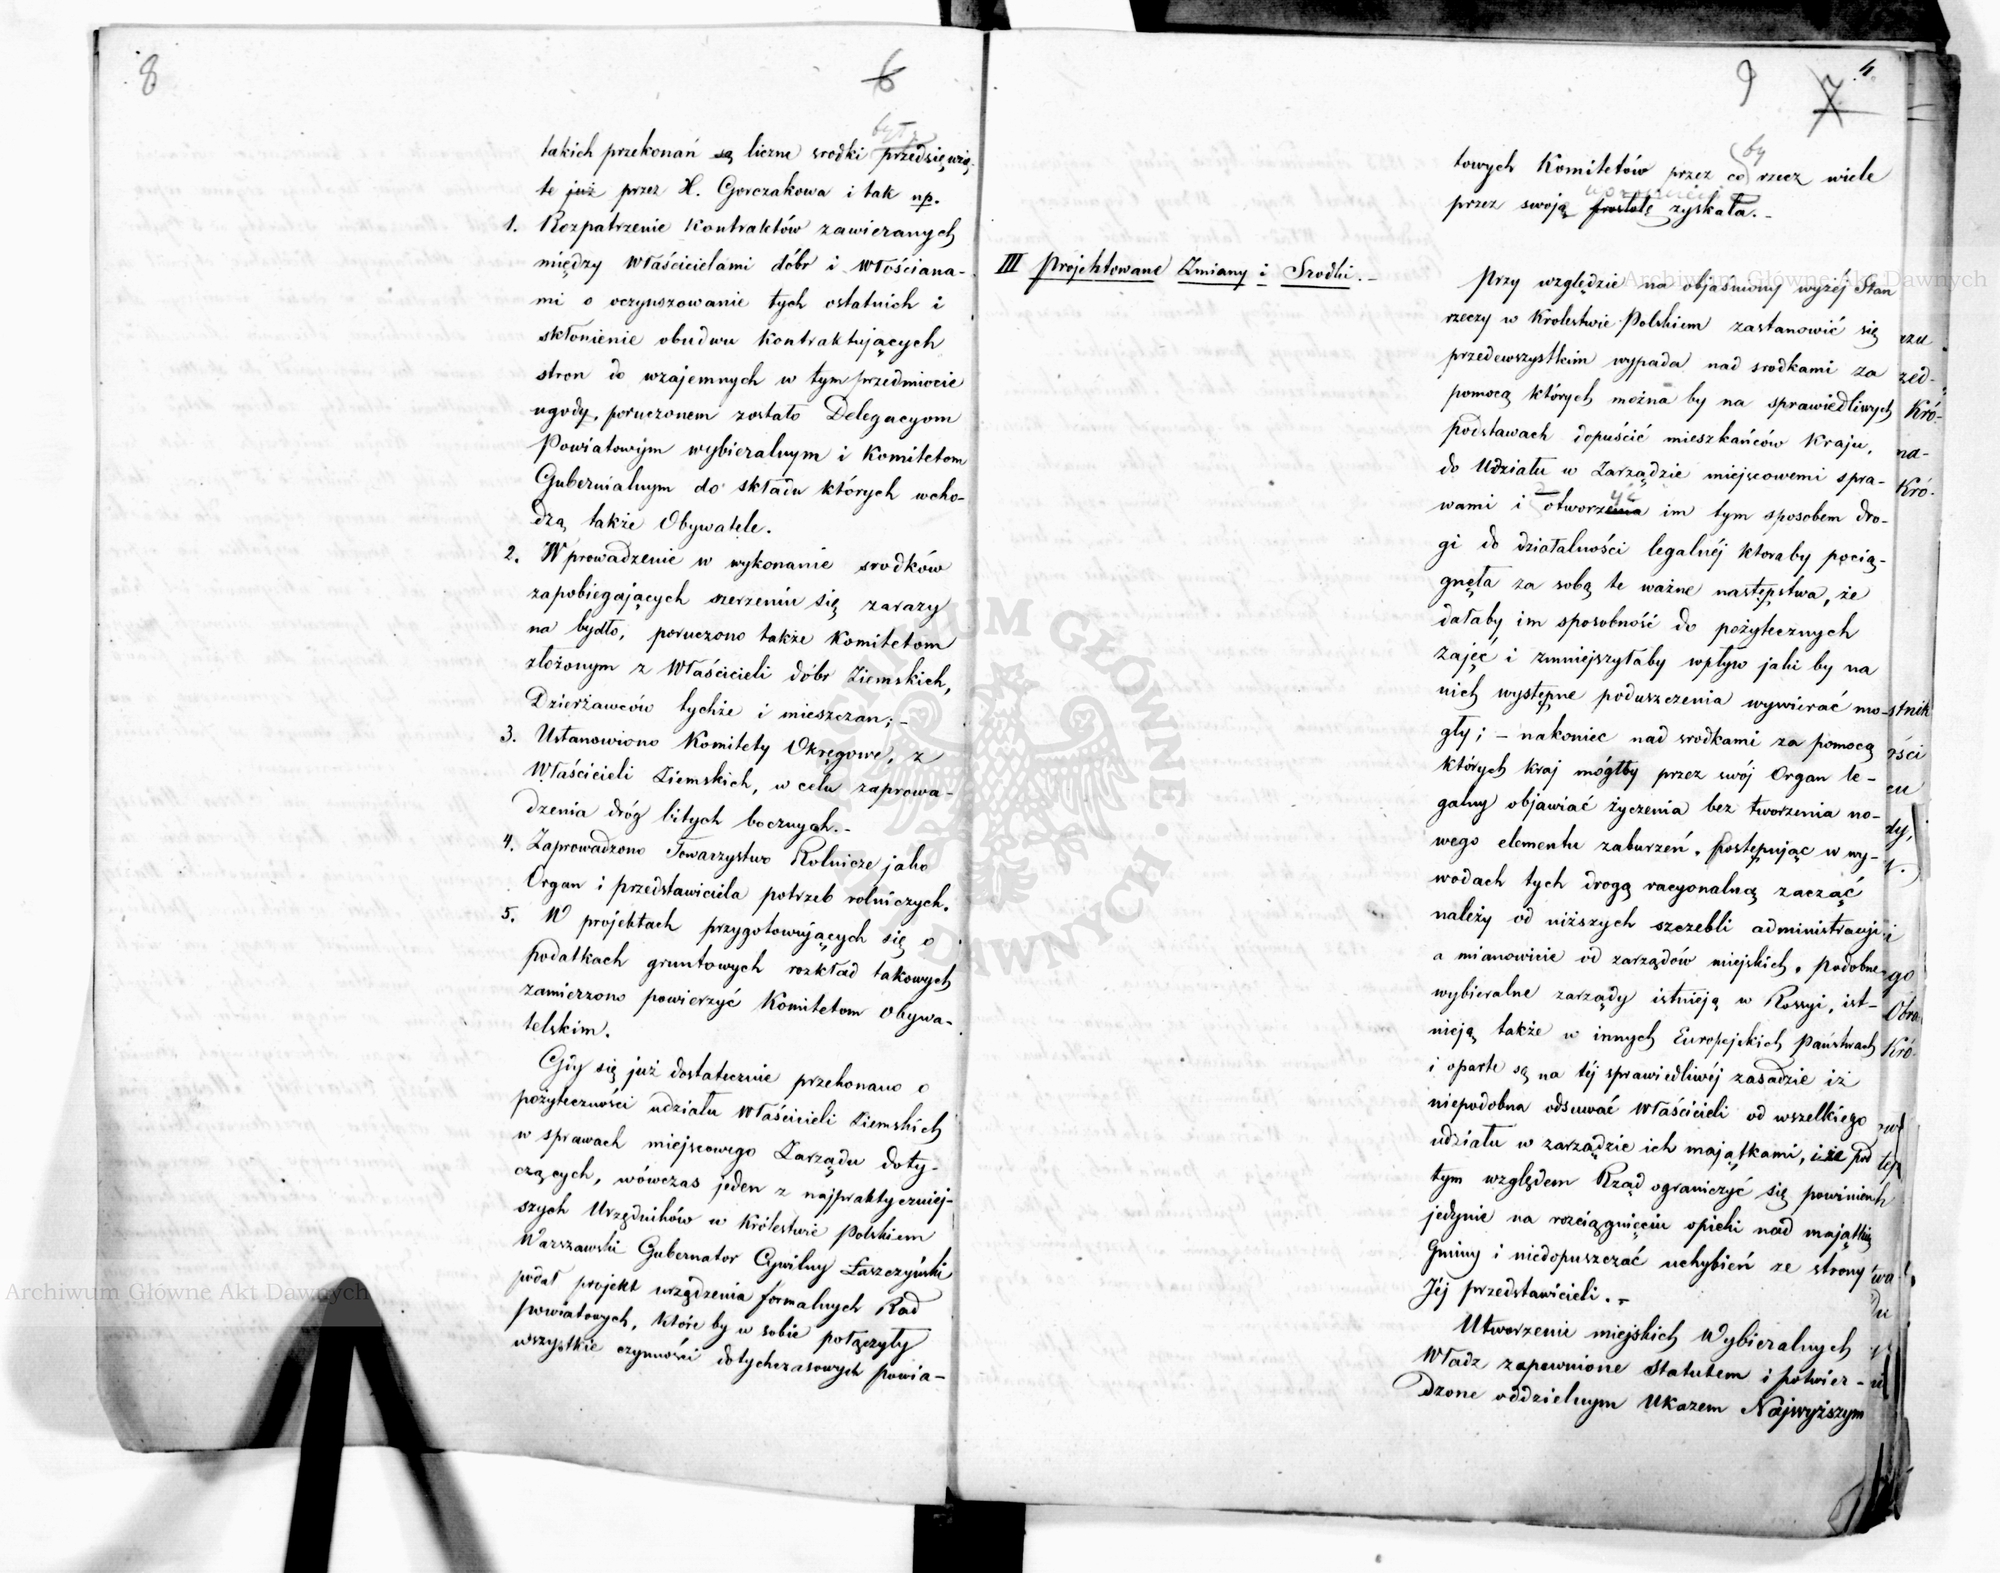 8
6
były
takich przekonań są liczne srodki przedsięwzię-
te już przez X. Gorczakowa i tak np.
1. Rozpatrzenie Kontraktów zawieranych
między Właścicielami dóbr i Włościana-
mi o oczynszowanie tych ostatnich i
skłonienie obudwu Kontraktujących
stron do wzajemnych w tym przedmiocie
ugody, poruczonem zostało Delegacyom
Powiatowym wybieralnym i Komitetom
Gubernialnym do składu których wcho-
dzą także Obywatele.
2. Wprowadzenie w wykonanie srodków
zapobiegających szerzeniu się zarazy
na bydło, poruczono także Komitetom
złożonym z Właścicieli dóbr Ziemskich,
Dzierżawców tychże i mieszczan; -
3. Ustanowiono Komitety Okręgowe, z
Właścicieli Ziemskich, w celu zaprowa-
dzenia dróg bitych bocznych. -
4. Zaprowadzono Towarzystwo Rolnicze jako
Organ i przedstawiciela potrzeb rolniczych.
5. W projektach przygotowujących się o
podatkach gruntowych rozkład takowych
zamierzono powierzyć Komitetom Obywa-
telskim.
Gdy się już dostatecznie przekonano o
pożyteczności udziału Właścicieli Ziemskich
w sprawach miejscowego Zarządu doty-
czących, wówczas jeden z najpraktyczniej-
szych Urzędników w Królestwie Polskiem
Warszawski Gubernator Cywilny Łaszczyński
podał projekt urządzenia formalnych Rad
powiatowych, które by w sobie połączyły
wszystkie czynności dotychczasowych powia-
9
7
4.
towych Komitetów przez co by rzecz wiele
przez swoją prostotę zyskała. -
III Projektowane Zmiany i Srodki. -
Przy względzie na objaśniony wyżej Stan
rzeczy w Krolestwie Polskiem zastanowić się
przedewszystkim wypada nad srodkami za
pomocą których można by na sprawiedliwych
podstawach dopuścić mieszkańców Kraju,
do Udziału w Zarządzie miejscowemi spra-
wami i otworzenia im tym sposobem dro-
gi do działalności legalnéj ktoraby pocią-
gnęła za sobą te ważne następstwa, że
dałaby im sposobność do pożytecznych
zajęć i zmniejszyłaby wpływ jaki by na
nich występne poduszczenia wywierać mo-
gły; - nakoniec nad srodkami za pomocą
których Kraj mógłby przez swój Organ le-
galny objawiać życzenia bez tworzenia no-
wego elementu zaburzeń. Postępując w wy-
wodach tych drogą racyonalną zacząć
należy od niższych szczebli administracji
a mianowicie od zarządów miejskich. Podobne
wybieralne zarządy istnieją w Rossyi, ist-
nieją także w innych Europejskich Państwach
i oparte są na téj sprawiedliwéj zasadzie iż
niepodobna odsuwać Właścicieli od wszelkiego
udziału w zarządzie ich majątkami, i że pod
tym względem Rząd ograniczyć się powinien
jedynie na rozciągnięciu opieki nad majątkiem
Gminy i niedopuszczać uchybień ze strony
Jéj przedstawicieli. -
Utworzenie miejskich Wybieralnych
Władz zapewnione Statutem i potwier-
dzone oddzielnym Ukazem Najwyższym
Archiwum Główne Akt Dawnych
Archiwum Główne Akt Dawnych
ARCHIWUM GŁÓWNE AKT DAWNYCH